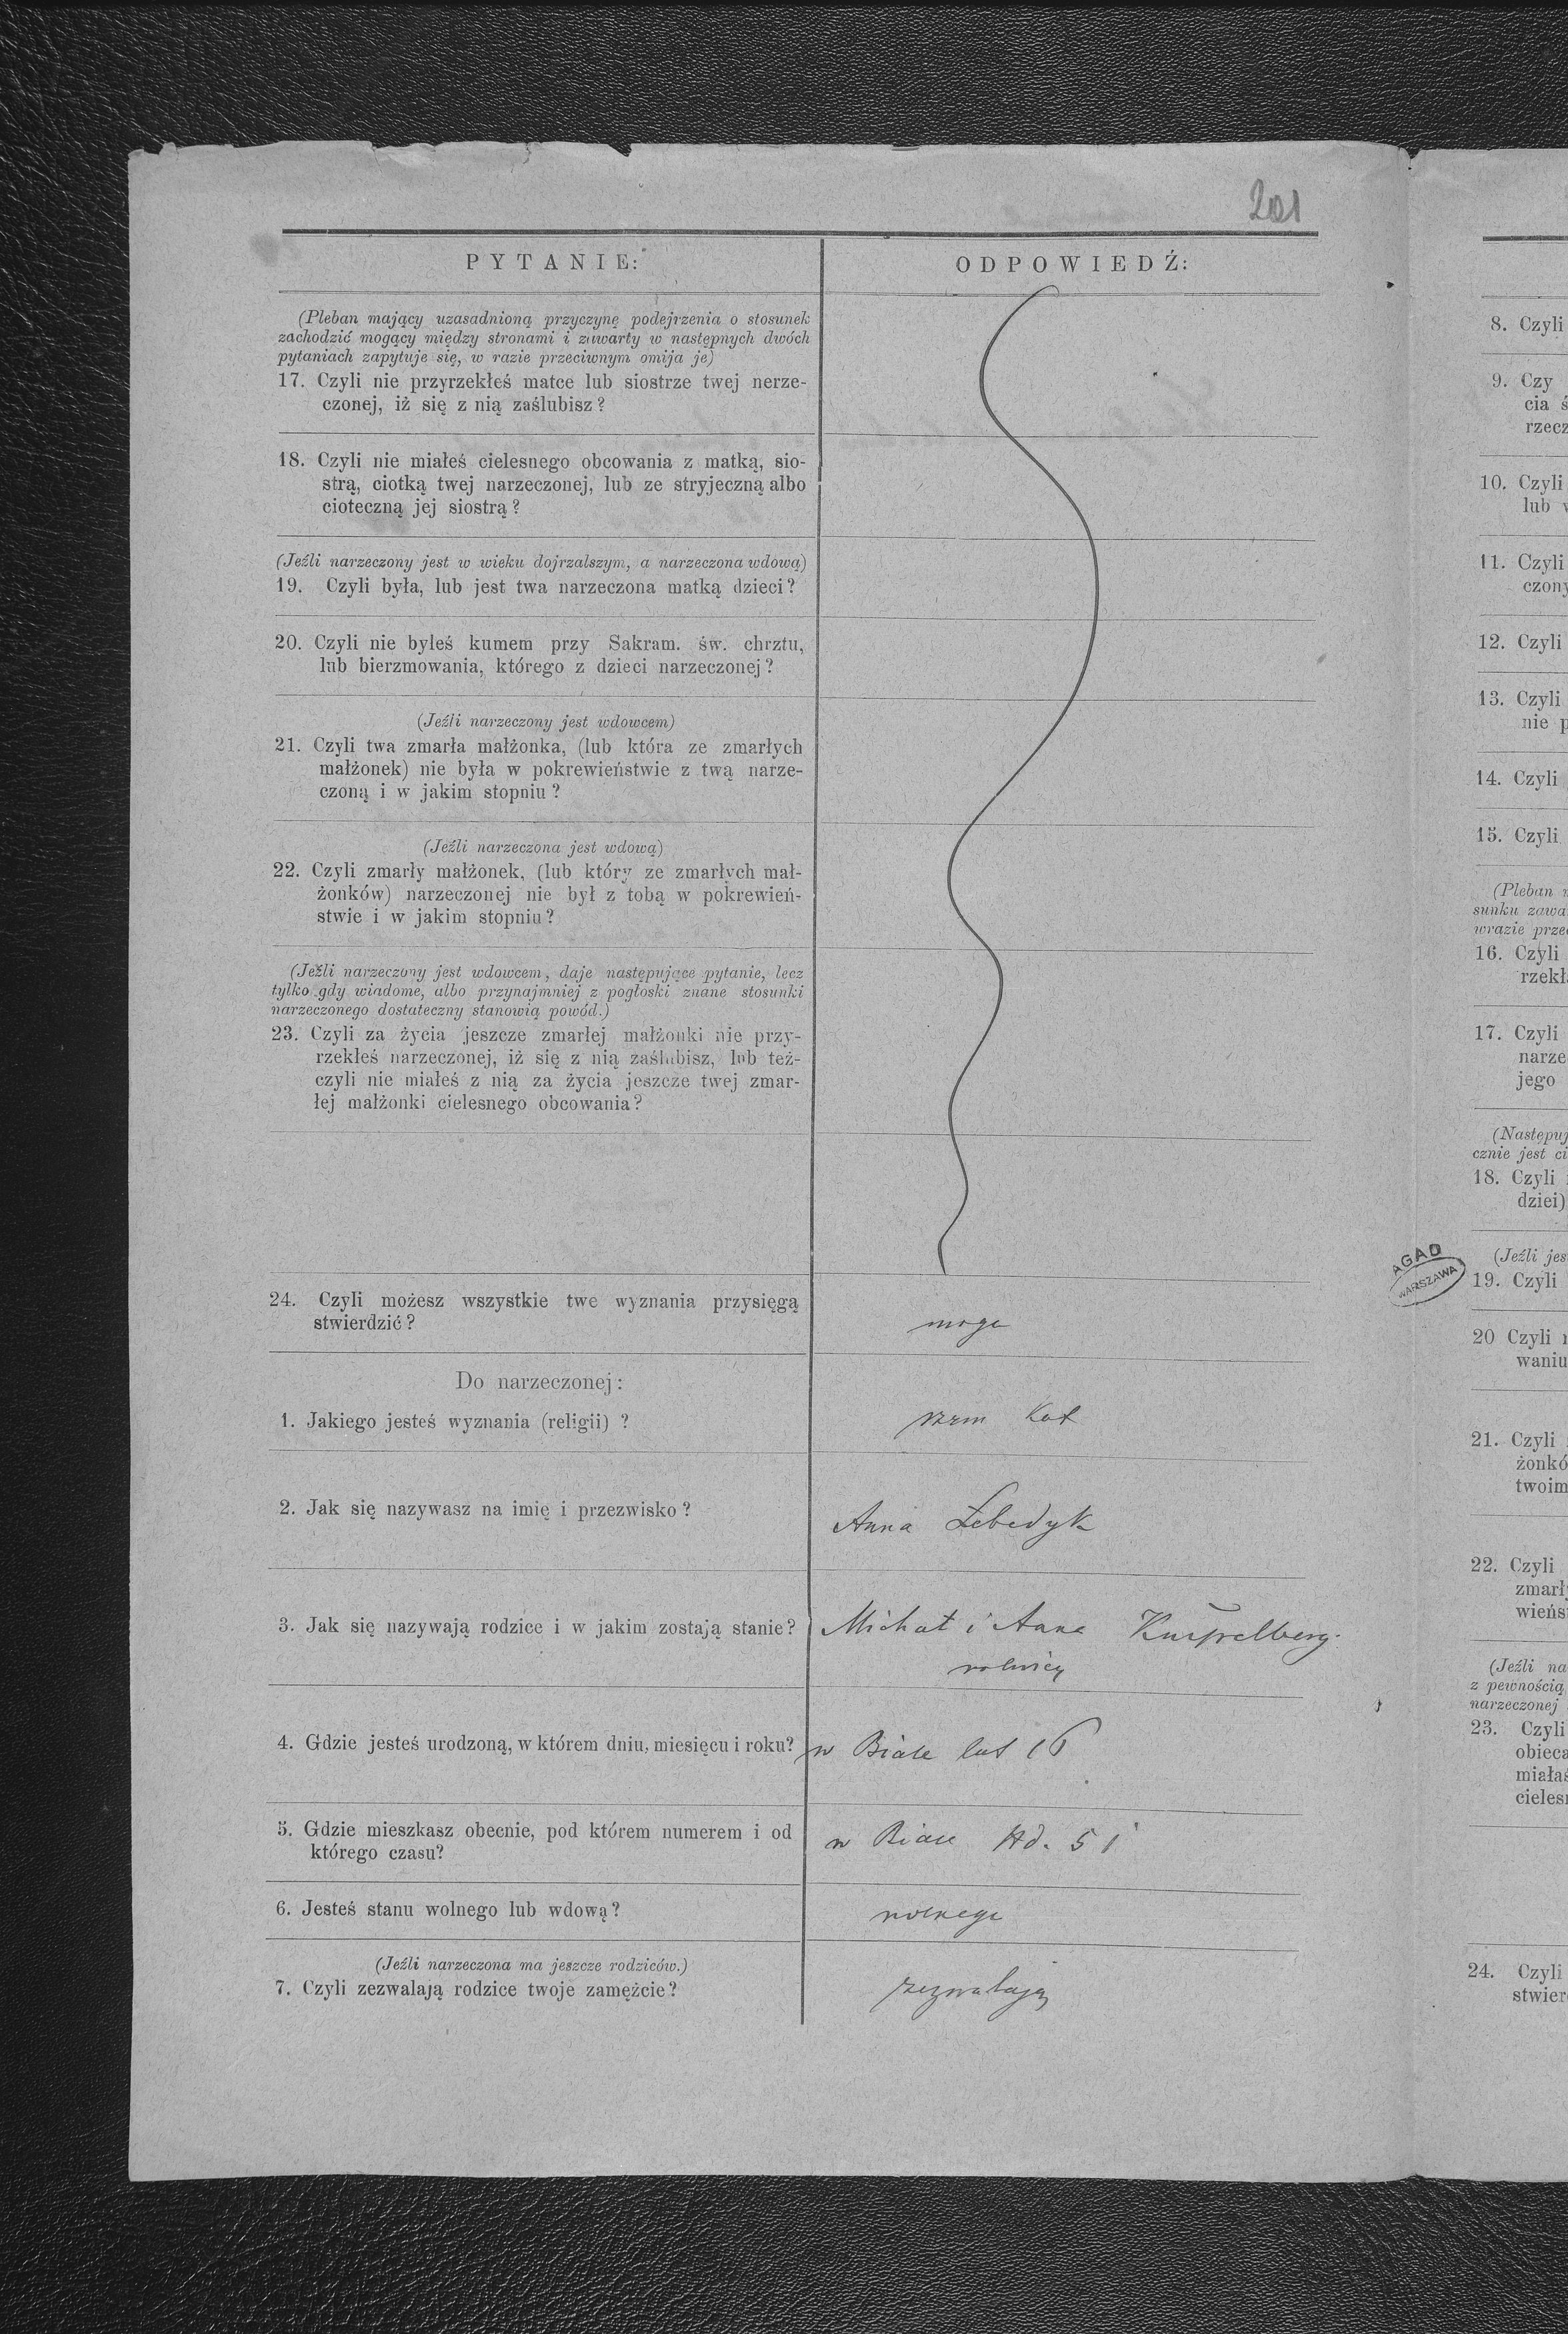 201
PYTANIE:
ODPOWIEDŹ:
(Pleban mający uzasadnioną przyczynę podejrzenia o stosunek
zachodzić mogący między stronami i zawarty w następnych dwóch
pytaniach zapytuje się, w razie przeciwnym omija je)
17. Czyli nie przyrzekłeś matce lub siostrze twej nerze-
czonej, iż się z nią zaślubisz?
18. Czyli nie miałeś cielesnego obcowania z matką, sio-
strą, ciotką twej narzeczonej, lub ze stryjeczną albo
cioteczną jej siostrą?
(Jeźli narzeczony jest w wieku dojrzalszym, a narzeczona wdową)
19. Czyli była, lub jest twa narzeczona matką dzieci?
20. Czyli nie byłeś kumem przy Sakram. św. chrztu,
lub bierzmowania, którego z dzieci narzeczonej?
(Jeźli narzeczony jest wdowcem)
21. Czyli twa zmarła małżonka, (lub która ze zmarłych
małżonek) nie była w pokrewieństwie z twą narze-
czoną i w jakim stopniu?
(Jeźli narzeczona jest wdową)
22. Czyli zmarły małżonek, (lub który ze zmarłych mał-
żonków) narzeczonej nie był z tobą w pokrewień-
stwie i w jakim stopniu?
(Jeźli narzeczony jest wdowcem, daje następujące pytanie, lecz
tylko gdy wiadome, albo przynajmniej z pogłoski znane stosunki
narzeczonego dostateczny stanowią powód.)
23. Czyli za życia jeszcze zmarłej małżonki nie przy-
rzekłeś narzeczonej, iż się z nią zaślubisz, lub też-
czyli nie miałeś z nią za życia jeszcze twej zmar-
łej małżonki cielesnego obcowania?
24. Czyli możesz wszystkie twe wyznania przysięgą
stwierdzić?
moge
Do narzeczonej:
1. Jakiego jesteś wyznania (religii) ?
rzym kat
2. Jak się nazywasz na imię i przezwisko?
Anna Łebedyk
3. Jak się nazywają rodzice i w jakim zostają stanie?
Michał i Anna
rolnicy
4. Gdzie jesteś urodzoną, w którem dniu, miesięcu i roku?
w Białe lat 16
5. Gdzie mieszkasz obecnie, pod którem numerem i od
którego czasu?
w Białe Nd. 51
6. Jesteś stanu wolnego lub wdową?
wolnego
(Jeźli narzeczona ma jeszcze rodziców.)
7. Czyli zezwalają rodzice twoje zamęźcie?
zezwalają
8. Czyli
9. Czy
cia ś
rzecz
10. Czyli
lub
11. Czyli
czony
12. Czyli
13. Czyli
nie p
14. Czyli
15. Czyli
(Pleban
sunku zawa
wrazie prze
16. Czyli
rzekł
17. Czyli
narze
jego
(Następuj
cznie jest ci
18. Czyli
dziei)
(Jeźli jes
AGAD
WARSZAWA
19. Czyli
20 Czyli
waniu
21. Czyli
żonkó
twoim
22. Czyli
zmarł
wieńs
(Jeźli na
z pewnością
narzeczonej
23. Czyli
obieca
miałaś
ciele
24. Czyli
stwier